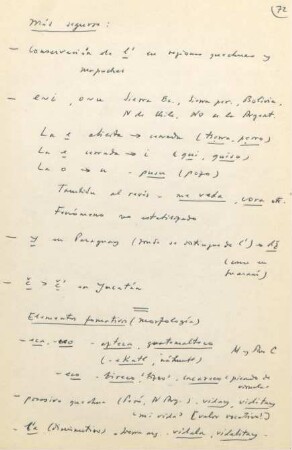 72
Más seguro:
— Conservación de l' en regiones quechuas y
mapuches
— e>i, o>u Sierra Ec., Sierra per., Bolivia,
N de Chile, NO de la Argent.
La e abierta → cerrada (tierra, perro)
La e cerrada → i (qui, quiso)
La o → u - pusu (pozo)
También al revés - me veda, vora etc.
Fenómeno no estabilizado
— y en Paraguay (donde se distingue de l') → dž
(como en
guaraní)
— č > č' en Yucatán
Elementos formativos (morfología)
— -eca, -eco - azteca, guatemalteco
(-ecatl, náhuatl) M y Am C
— -eco -
— posesivo quechua (Perú, N Arg.) viday, viditay
"mi vida" [valor afectivo!]
— -la (diminutivo), vidala, vidalitay